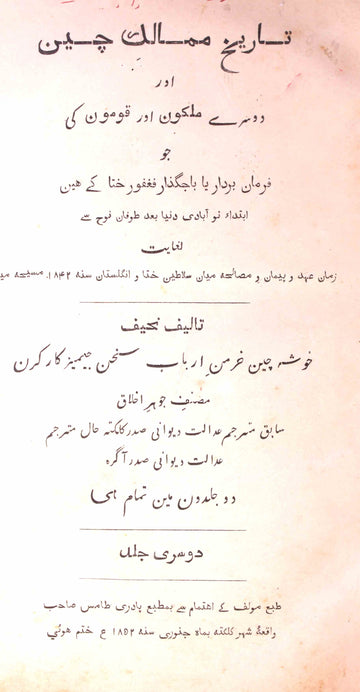 تاریخ ممالک چین
اور
دوسرے ملکون اور قومون کی
جو
فرمان بردار یا باجگذار فغفور ختا کے ھین
ابتداء نو آبادی دنیا بعد طوفان نوح سے
لغایت
زمان عہد و پیمان و مصالحہ میان سلاطین ختا و انگلستان سنہ ۱۸۴۲ مسیحیہ
تالیف نحیف
خوشہ چین خرمن ارباب سخن جیمیز کارکرن
مصنف جوہر اخلاق
سابق مترجم عدالت دیوانی صدر کلکتہ حال مترجم
عدالت دیوانی صدر آگرہ
دو جلدون مین تمام ہی
دوسری جلد
طبع مولف کے اھتمام سے بمطبع پادری طامس صاحب
واقعۂ شہر کلکتہ بماہ جنوری سنہ ۱۸۵۲ ع ختم ھوئی